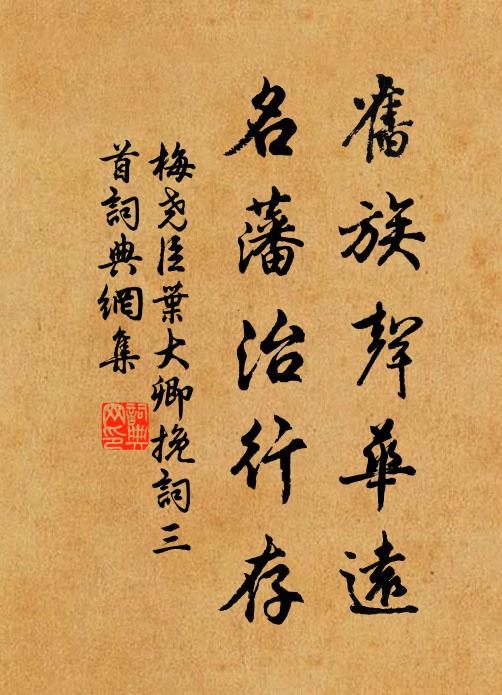 舊族聲華遠
名藩治行存
梅堯臣葉大卿挽詞三
首詞典網集
詞典
網印